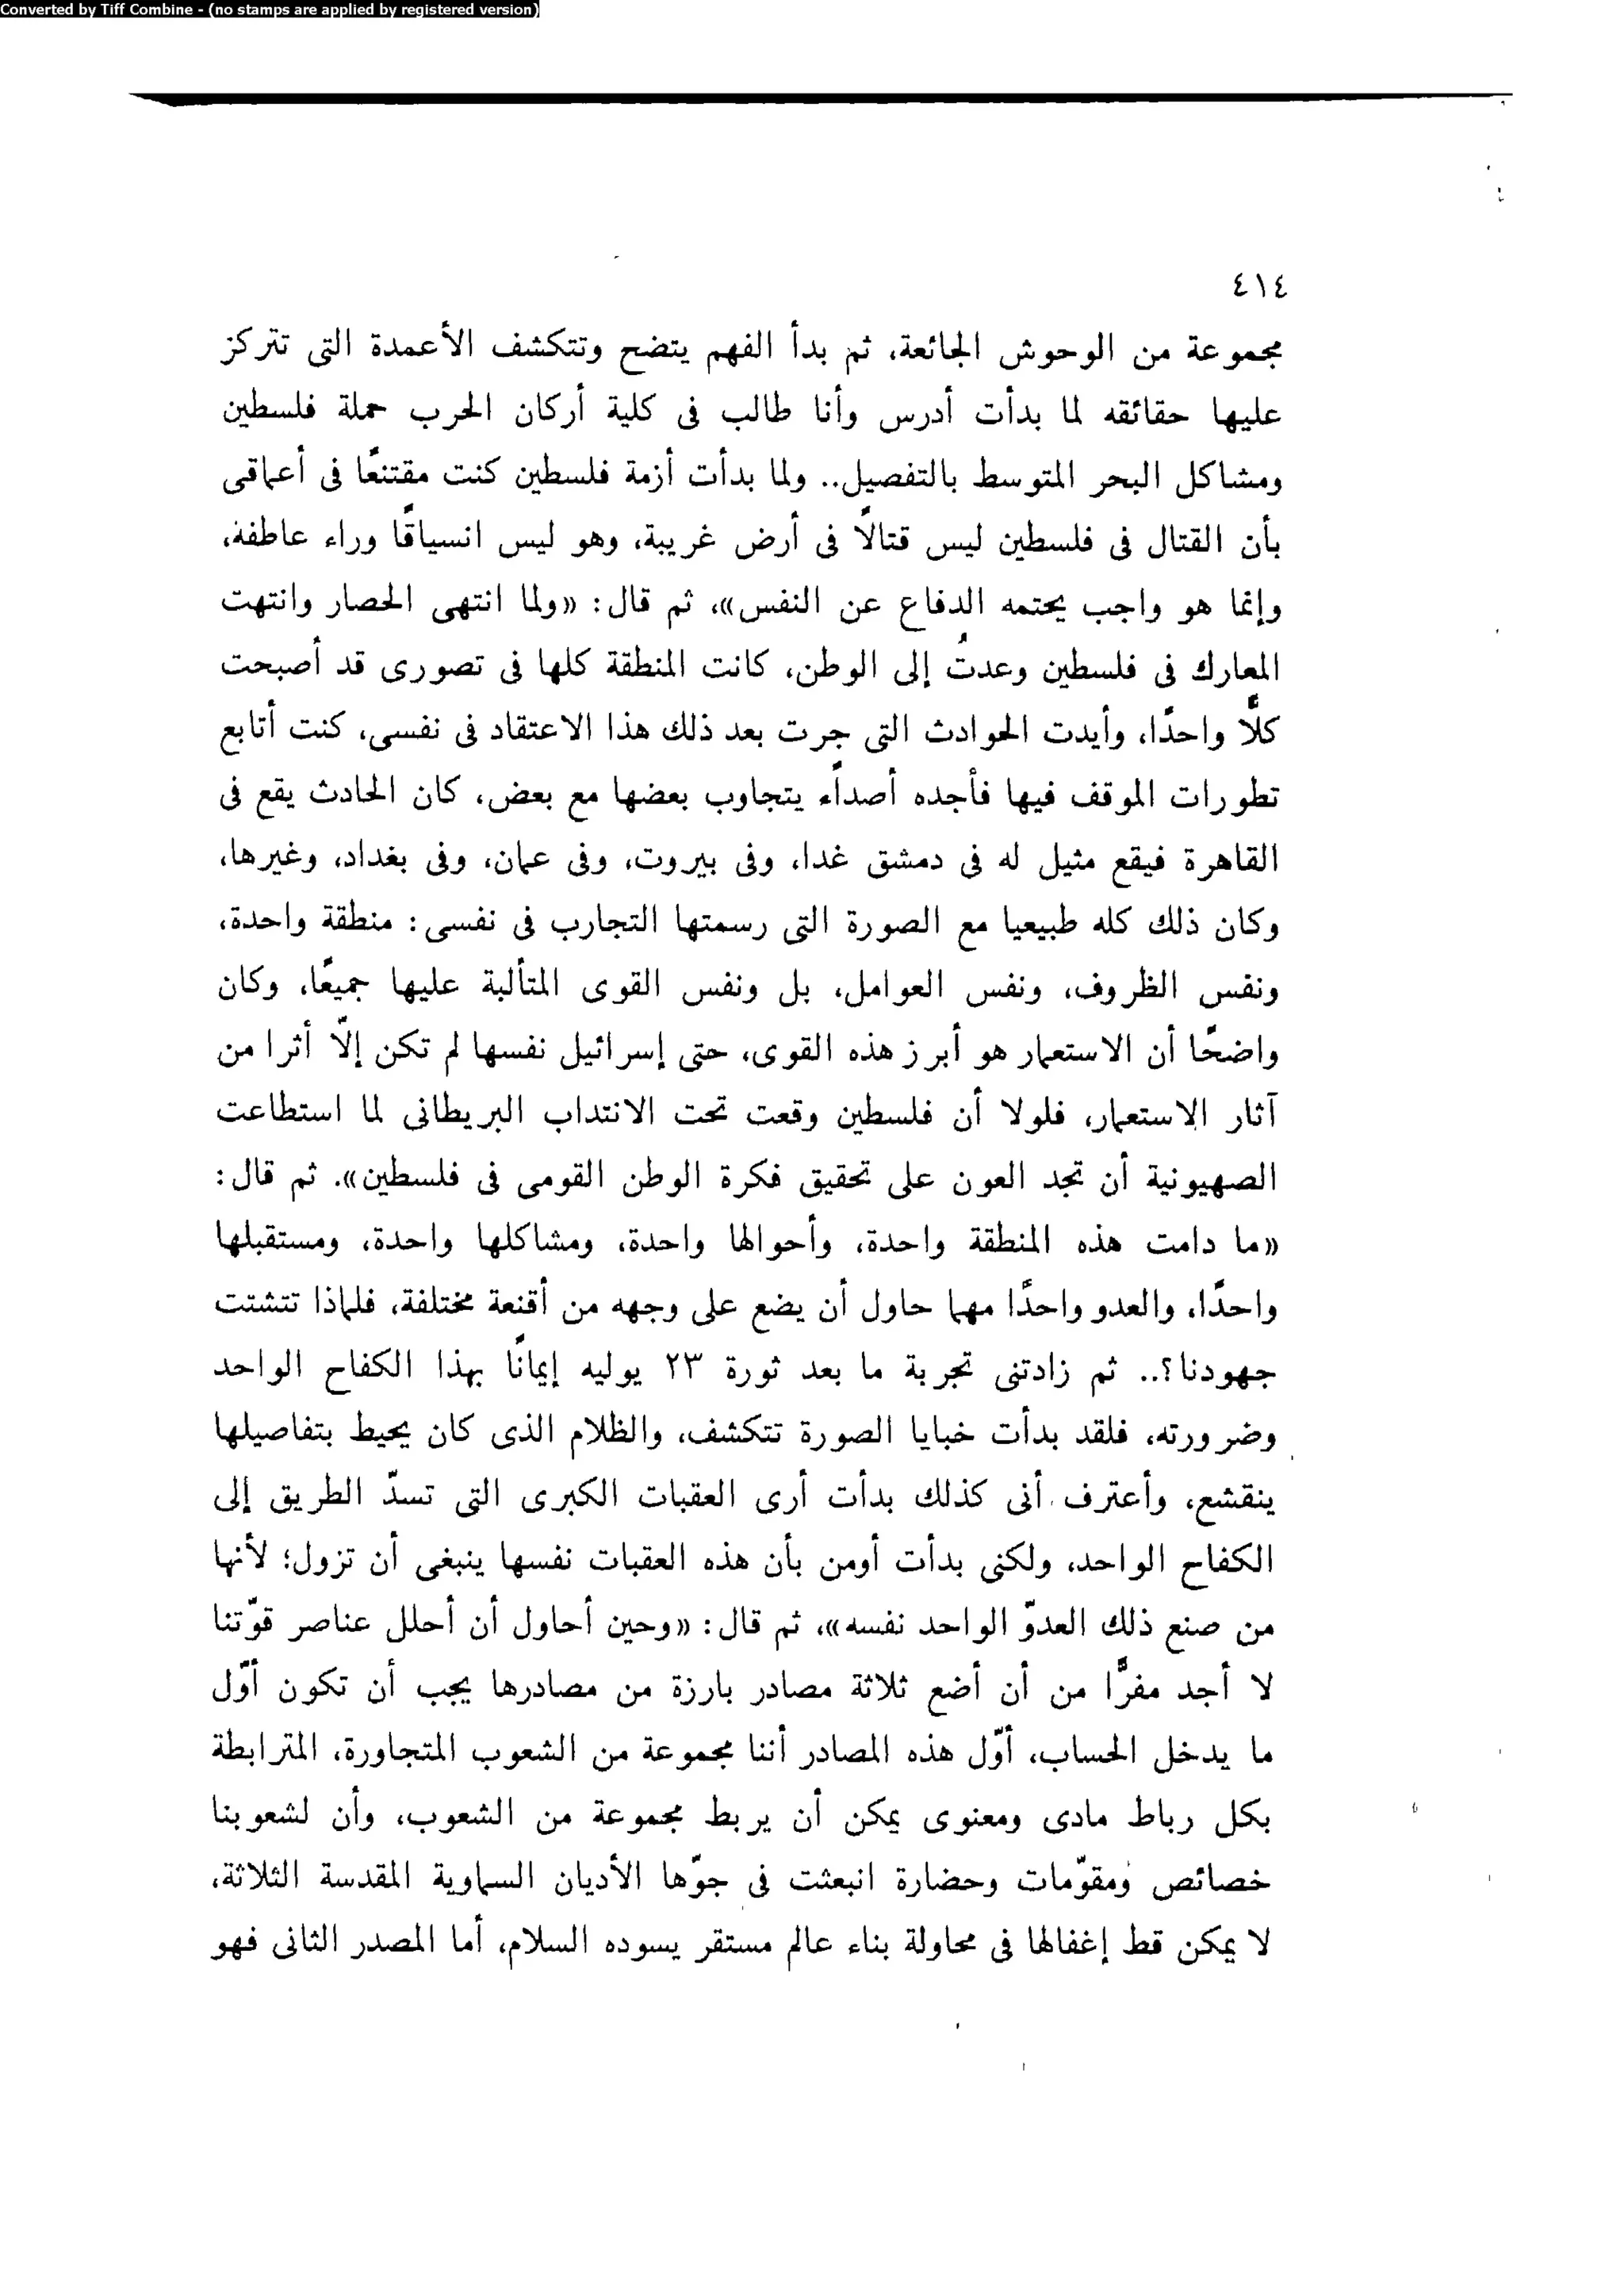 Converted by Tiff Combine - (no stamps are applied by registered version)
٤١٤
مجموعة من الوحوش الجائعة، ثم بدأ الفهم يتضح وتتكشف الأعمدة التى تتركز
عليها حقائقه لما بدأت أدرس وأنا طالب فى كلية أركان الحرب حملة فلسطين
ومشاكل البحر المتوسط بالتفصيل.. ولما بدأت أزمة فلسطين كنت مقتنعًا فى أعماقى
بأن القتال فى فلسطين ليس قتالًا فى أرض غريبة، وهو ليس انسياقًا وراء عاطفة،
وإنما هو واجب يحتمه الدفاع عن النفس»، ثم قال: «ولما انتهى الحصار وانتهت
المعارك فى فلسطين وعدتُ إلى الوطن، كانت المنطقة كلها فى تصورى قد أصبحت
كلًّا واحدًا، وأيدت الحوادث التى جرت بعد ذلك هذا الاعتقاد فى نفسى، كنت أتابع
تطورات الموقف فيها فأجده أصداًء يتجاوب بعضها مع بعض، كان الحادث يقع فى
القاهرة فيقع مثيل له فى دمشق غدا، وفى بيروت، وفى عمان، وفى بغداد، وغيرها،
وكان ذلك كله طبيعيا مع الصورة التى رسمتها التجارب فى نفسى: منطقة واحدة،
ونفس الظروف، ونفس العوامل، بل ونفس القوى المتألبة عليها جميعًا، وكان
واضحًا أن الاستعمار هو أبرز هذه القوى، حتى إسرائيل نفسها لم تكن إلّا أثرا من
آثار الاستعمار، فلولا أن فلسطين وقعت تحت الانتداب البريطانى لما استطاعت
الصهيونية أن تجد العون على تحقيق فكرة الوطن القومى فى فلسطين». ثم قال:
«ما دامت هذه المنطقة واحدة، وأحوالها واحدة، ومشاكلها واحدة، ومستقبلها
واحدًا، والعدو واحدًا مهما حاول أن يضع على وجهه من أقنعة مختلفة، فلماذا تتشتت
جهودنا؟.. ثم زادتنى تجربة ما بعد ثورة ٢٣ يوليه إيمانًا بهذا الكفاح الواحد
وضرورته، فلقد بدأت خبايا الصورة تتكشف، والظلام الذى كان يحيط بتفاصيلها
ينقشع، وأعترف أنى كذلك بدأت أرى العقبات الكبرى التى تسدّ الطريق إلى
الكفاح الواحد، ولكنى بدأت أومن بأن هذه العقبات نفسها ينبغى أن تزول؛ لأنها
من صنع ذلك العدوّ الواحد نفسه»، ثم قال: «وحين أحاول أن أحلل عناصر قوّتنا
لا أجد مفرًّا من أن أضع ثلاثة مصادر بارزة من مصادرها يجب أن تكون أوّل
ما يدخل الحساب، أوّل هذه المصادر أننا مجموعة من الشعوب المتجاورة، المترابطة
بكل رباط مادى ومعنوى يمكن أن يربط مجموعة من الشعوب، وأن لشعوبنا
خصائص ومقوّمات وحضارة انبعثت فى جوّها الأديان السماوية المقدسة الثلاثة،
لا يمكن قط إغفالها فى محاولة بناء عالم مستقر يسوده السلام، أما المصدر الثانى فهو